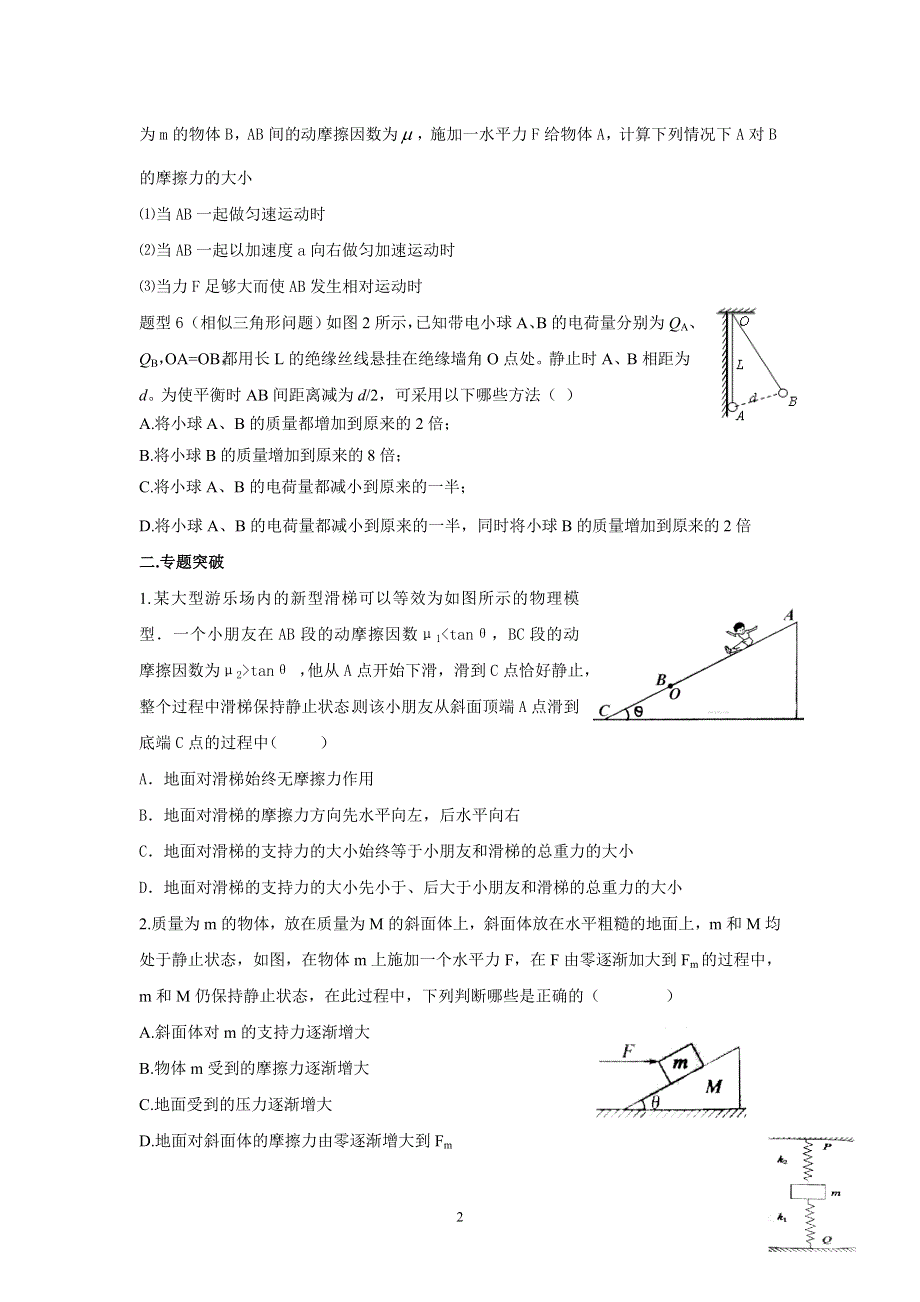 为m的物体B，AB间的动摩擦因数为μ，施加一水平力F给物体A，计算下列情况下A对B
的摩擦力的大小
⑴当AB一起做匀速运动时
⑵当AB一起以加速度a向右做匀加速运动时
⑶当力F足够大而使AB发生相对运动时
题型6（相似三角形问题）如图2所示，已知带电小球A、B的电荷量分别为QA、
QB，OA=OB，都用长L的绝缘丝线悬挂在绝缘墙角O点处。静止时A、B相距为
d。为使平衡时AB间距离减为d/2，可采用以下哪些方法（ ）
O
L
d
A
B
A.将小球A、B的质量都增加到原来的2倍；
B.将小球B的质量增加到原来的8倍；
C.将小球A、B的电荷量都减小到原来的一半；
D.将小球A、B的电荷量都减小到原来的一半，同时将小球B的质量增加到原来的2倍
二.专题突破
1.某大型游乐场内的新型滑梯可以等效为如图所示的物理模
型．一个小朋友在AB段的动摩擦因数μ1<tanθ，BC段的动
摩擦因数为μ2>tanθ ，他从A点开始下滑，滑到C点恰好静止，
整个过程中滑梯保持静止状态.则该小朋友从斜面顶端A点滑到
底端C点的过程中（ ）
A
B
O
C
θ
A．地面对滑梯始终无摩擦力作用
B．地面对滑梯的摩擦力方向先水平向左，后水平向右
C．地面对滑梯的支持力的大小始终等于小朋友和滑梯的总重力的大小
D．地面对滑梯的支持力的大小先小于、后大于小朋友和滑梯的总重力的大小
2.质量为m的物体，放在质量为M的斜面体上，斜面体放在水平粗糙的地面上，m和M均
处于静止状态，如图，在物体m上施加一个水平力F，在F由零逐渐加大到Fm的过程中，
m和M仍保持静止状态，在此过程中，下列判断哪些是正确的（ ）
A.斜面体对m的支持力逐渐增大
B.物体m受到的摩擦力逐渐增大
C.地面受到的压力逐渐增大
D.地面对斜面体的摩擦力由零逐渐增大到Fm
F
m
M
θ
P
k2
m
k1
Q
2